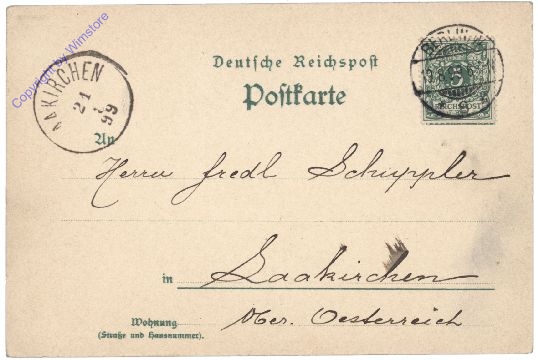 Copyright by Wimstore
AAKIRCHEN
21
99
BERLIN
19.8
5
REICHSPOST
Deutsche Reichspost
Postkarte
An
Herrn fredl Schuppler
in Laakirchen
Wohnung
(Straße und Hausnummer).
Ober. Oesterreich